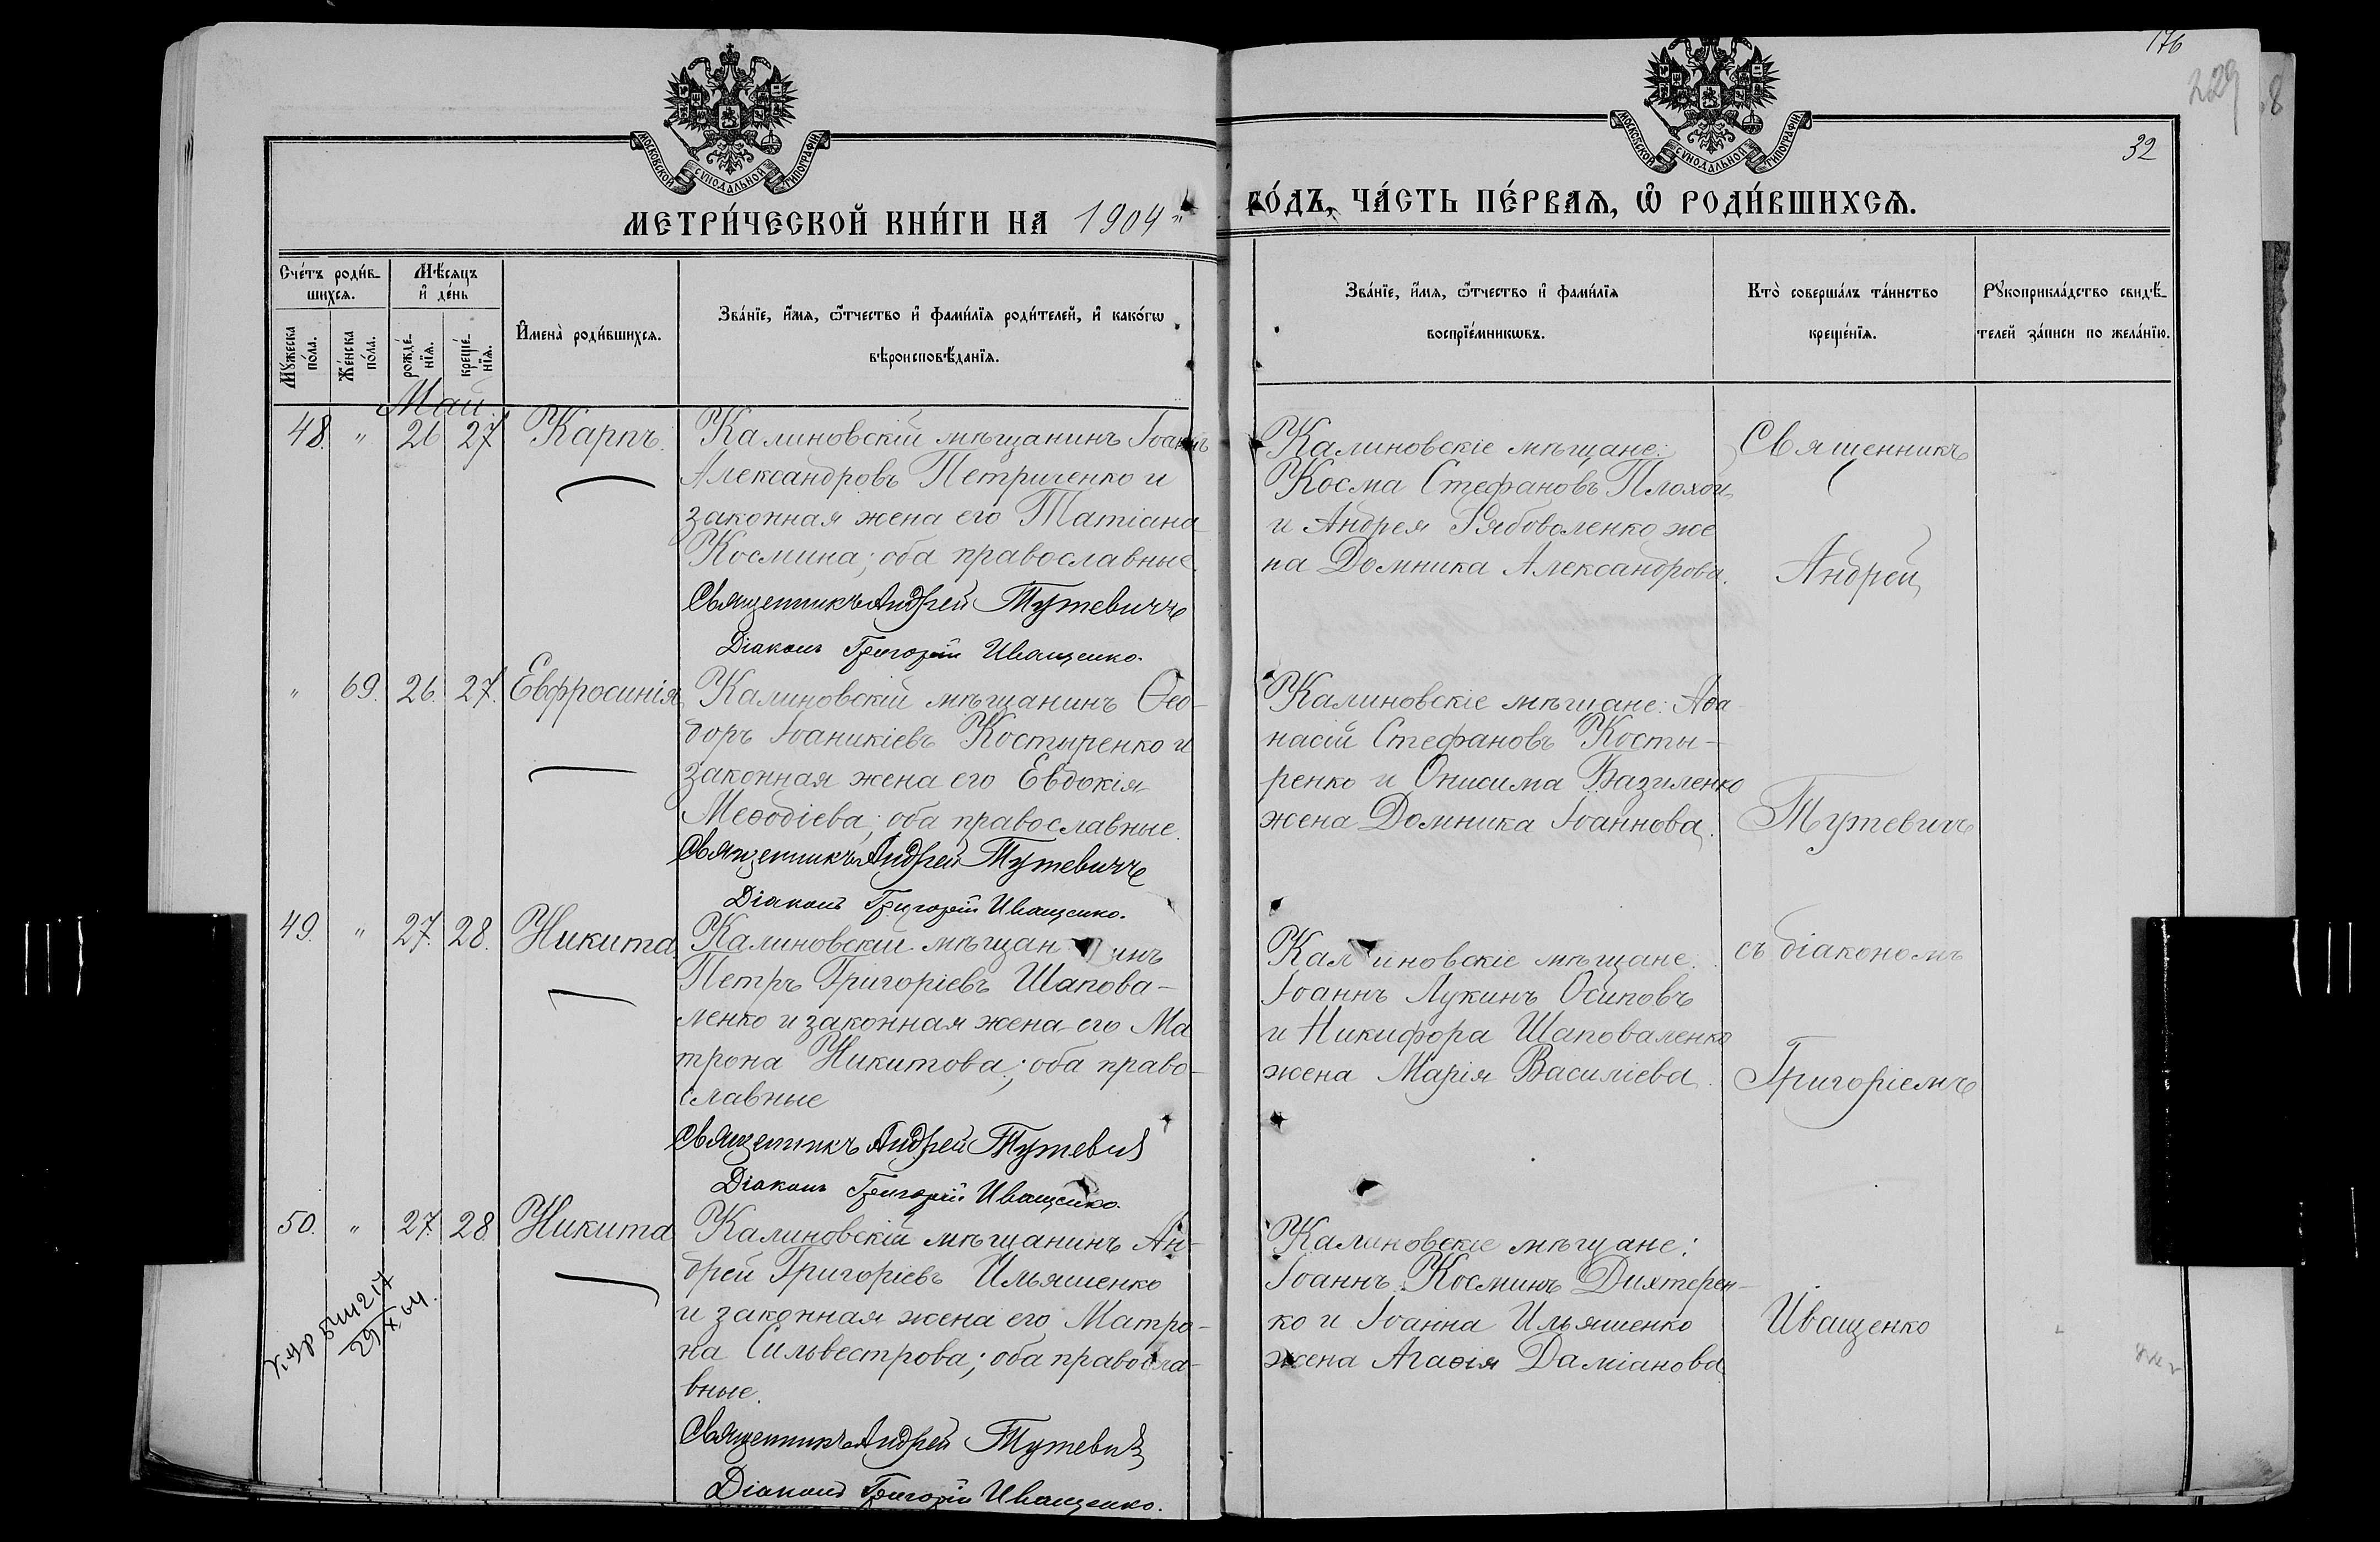 176
229
8
32
МОСКОВСКОЙ СѴНОДАЛЬНОЙ ТИПОГРАФІИ
МОСКОВСКОЙ СѴНОДАЛЬНОЙ ТИПОГРАФІИ
МЕТРИ́ЧЕСКОЙ КНИ́ГИ НА 1904
ГО́ДЪ, ЧА́СТЬ ПЕ́РВАѦ, Ѡ҆ РОДИ́ВШИХСѦ.
Сче́тъ роди́в-
шихсѧ.
Мѣ́сѧцъ
и҆ де́нь
Мꙋ́жеска
по́ла.
Же́нска
по́ла.
рожде́-
нїѧ.
креще́-
нїѧ.
И҆мена̀ роди́вшихсѧ.
Зва́нїе, и҆́мѧ, ѻ҆́тчество и҆ фами́лїѧ роди́телей, и҆ како́гѡ
вѣроисповѣ́данїѧ.
Зва́нїе, и҆́мѧ, ѻ҆́тчество и҆ фами́лїѧ
воспрїе́мникѡвъ.
Кто̀ соверша́лъ та́инство
креще́нїѧ.
Рꙋкоприкла́дство свидѣ́-
телей за́писи по жела́нїю.
Май.
48. " 26 27 Карпъ.
Калиновскій мѣщанинъ Іоаннъ
Александровъ Петриченко и
законная жена его Татіана
Космина; оба православные
Священникъ Андрей Тутевичъ
Діаконъ Григорій Иващенко.
Калиновскіе мѣщане:
Косма Стефановъ Плохой
и Андрея Рябоволенко же
на Домника Александрова.
" 69. 26. 27. Евфросинія
Калиновскій мѣщанинъ Ѳео-
доръ Іоаникіевъ Костыренко и
законная жена его Евдокія
Меѳодіева; оба православные.
Священникъ Андрей Тутевичъ
Діаконъ Григорій Иващенко.
Калиновскіе мѣщане: Аѳа
насій Стефановъ Косты-
ренко и Онисима Базиленко
жена Домника Іоаннова.
49. " 27. 28. Никита
Калиновскій мѣщан инъ
Петръ Григоріевъ Шапова-
ленко и законная жена его Ма
трона Никитова; оба право-
славные
Священникъ Андрей Тутевич
Діаконъ Григорій Иващенко.
Калиновскіе мѣщане:
Іоаннъ Лукинъ Осиповъ
и Никифора Шаповаленко
жена Марія Василіева.
50. " 27. 28 Никита
Калиновскій мѣщанинъ Ан-
дрей Григоріевъ Ильяшенко
и законная жена его Матро-
на Сильвестрова; оба правосла-
вные.
Священникъ Андрей Тутевич
Діаконъ Григорій Иващенко.
Калиновскіе мѣщане:
Іоаннъ Косминъ Дихтерен-
ко и Іоанна Ильяшенко
жена Агаѳія Даміанова
Священникъ
Андрей
Тутевичъ
съ діакономъ
Григоріемъ
Иващенко